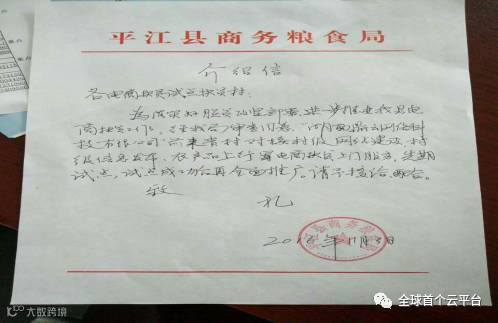 平江县商务粮食局
介绍信
各电商扶贫试点扶贫村:
为落实好脱贫攻坚部署,进一步推进我县电
商扶贫工作,经我局审查同意,
技有限公司前来贵村对接村级网络建设,村
级信息发布,农产品上行等电商扶贫上门服务,先期
试点,试点成功后再全面推广。请予接洽、配合。
致
礼
平江县商务粮食局
大数跨境
全球首个云平台